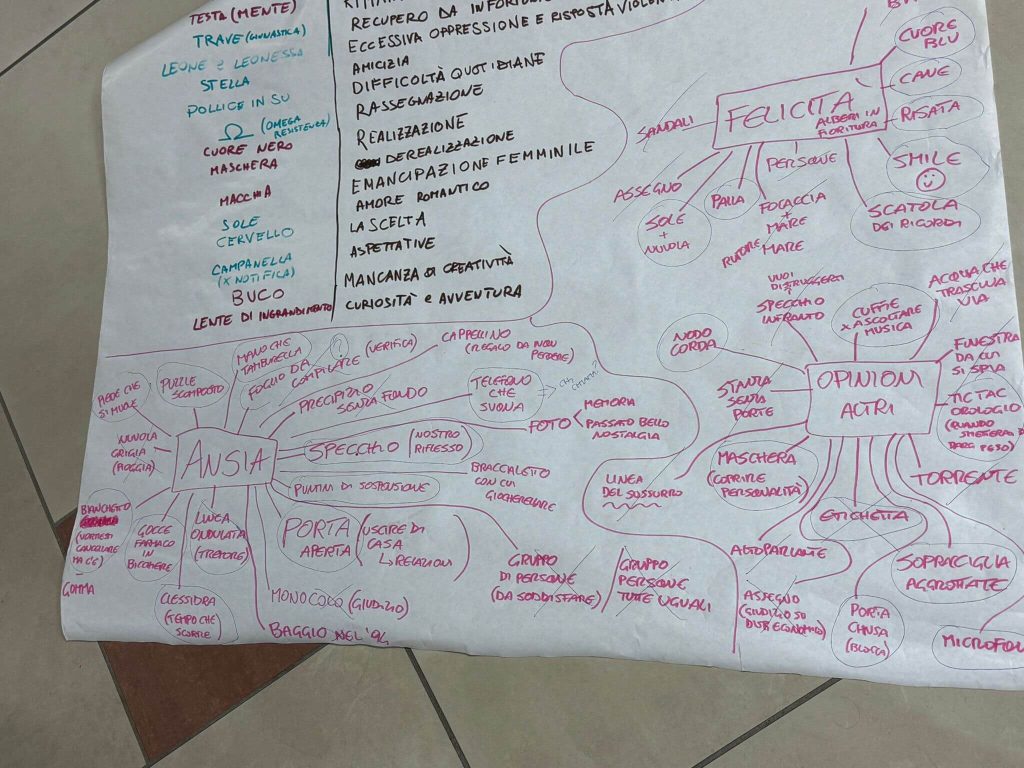 TESTA (MENTE)
TRAVE (GINNASTICA)
LEONE e LEONESSA
STELLA
POLLICE IN SU
Ω (OMEGA
RESISTENZA)
CUORE NERO
MASCHERA
MACCHIA
SOLE
CERVELLO
CAMPANELLA
(X NOTIFICA)
BUCO
LENTE DI INGRANDIMENTO
RECUPERO DA
ECCESSIVA OPPRESSIONE E RISPOSTA
AMICIZIA
DIFFICOLTÀ QUOTIDIANE
RASSEGNAZIONE
REALIZZAZIONE
DEREALIZZAZIONE
EMANCIPAZIONE FEMMINILE
AMORE ROMANTICO
LA SCELTA
ASPETTATIVE
MANCANZA DI CREATIVITÀ
CURIOSITÀ e AVVENTURA
FELICITÀ
ALBERI IN
FIORITURA
CUORE
BLU
CANE
RISATA
SMILE
SCATOLA
DEI RICORDI
PERSONE
FOCACCIA
+
MARE
RUMORE
MARE
PALLA
SOLE
+
NUVOLA
ASSEGNO
SANDALI
ANSIA
PIEDE CHE
SI MUOVE
PUZZLE
SCOMPOSTO
MANO CHE
TAMBURELLA
FOGLIO DA
COMPILARE
? (VERIFICA)
CAPPELLINO
(REGALO DA NON
PERDERE)
PRECIPIZIO
SENZA FONDO
TELEFONO
CHE
SUONA
FOTO
MEMORIA
PASSATO BELLO
NOSTALGIA
SPECCHIO (NOSTRO
RIFLESSO)
BRACCIALETTO
CON CUI
GIOCHERELLARE
PUNTINI DI SOSPENSIONE
PORTA
APERTA
(USCIRE DI
CASA
↳ RELAZIONI)
GRUPPO
DI PERSONE
(DA SODDISFARE)
GRUPPO
PERSONE
TUTTE UGUALI
MONOCOLO (GIUDIZIO)
BAGGIO NEL '94
LINEA
ONDULATA
(TREMORE)
CLESSIDRA
(TEMPO CHE
SCORRE)
GOCCE
FARMACO
IN
BICCHIERE
BIANCHETTO
(VORRESTI
CANCELLARE
MA C'È)
GOMMA
NUVOLA
GRIGIA
(PIOGGIA)
OPINIONI
ALTRI
NODO
CORDA
VUOI
DISTRUGGERTI
SPECCHIO
INFRANTO
CUFFIE
X ASCOLTARE
MUSICA
ACQUA CHE
TRASCINA
VIA
FINESTRA
DA CUI
SI SPIA
TIC TAC
OROLOGIO
(QUANDO
SMETTERAI DI
DARE PESO)
TORRENTE
SOPRACCIGLIA
AGGROTTATE
PORTA
CHIUSA
(BLOCCA)
ETICHETTA
ASSEGNO
(GIUDIZIO SU
ALTOPARLANTE
MASCHERA
(COPRIRE
PERSONALITÀ)
LINEA
DEL SUSSURRO
STANZA
SENZA
PORTE